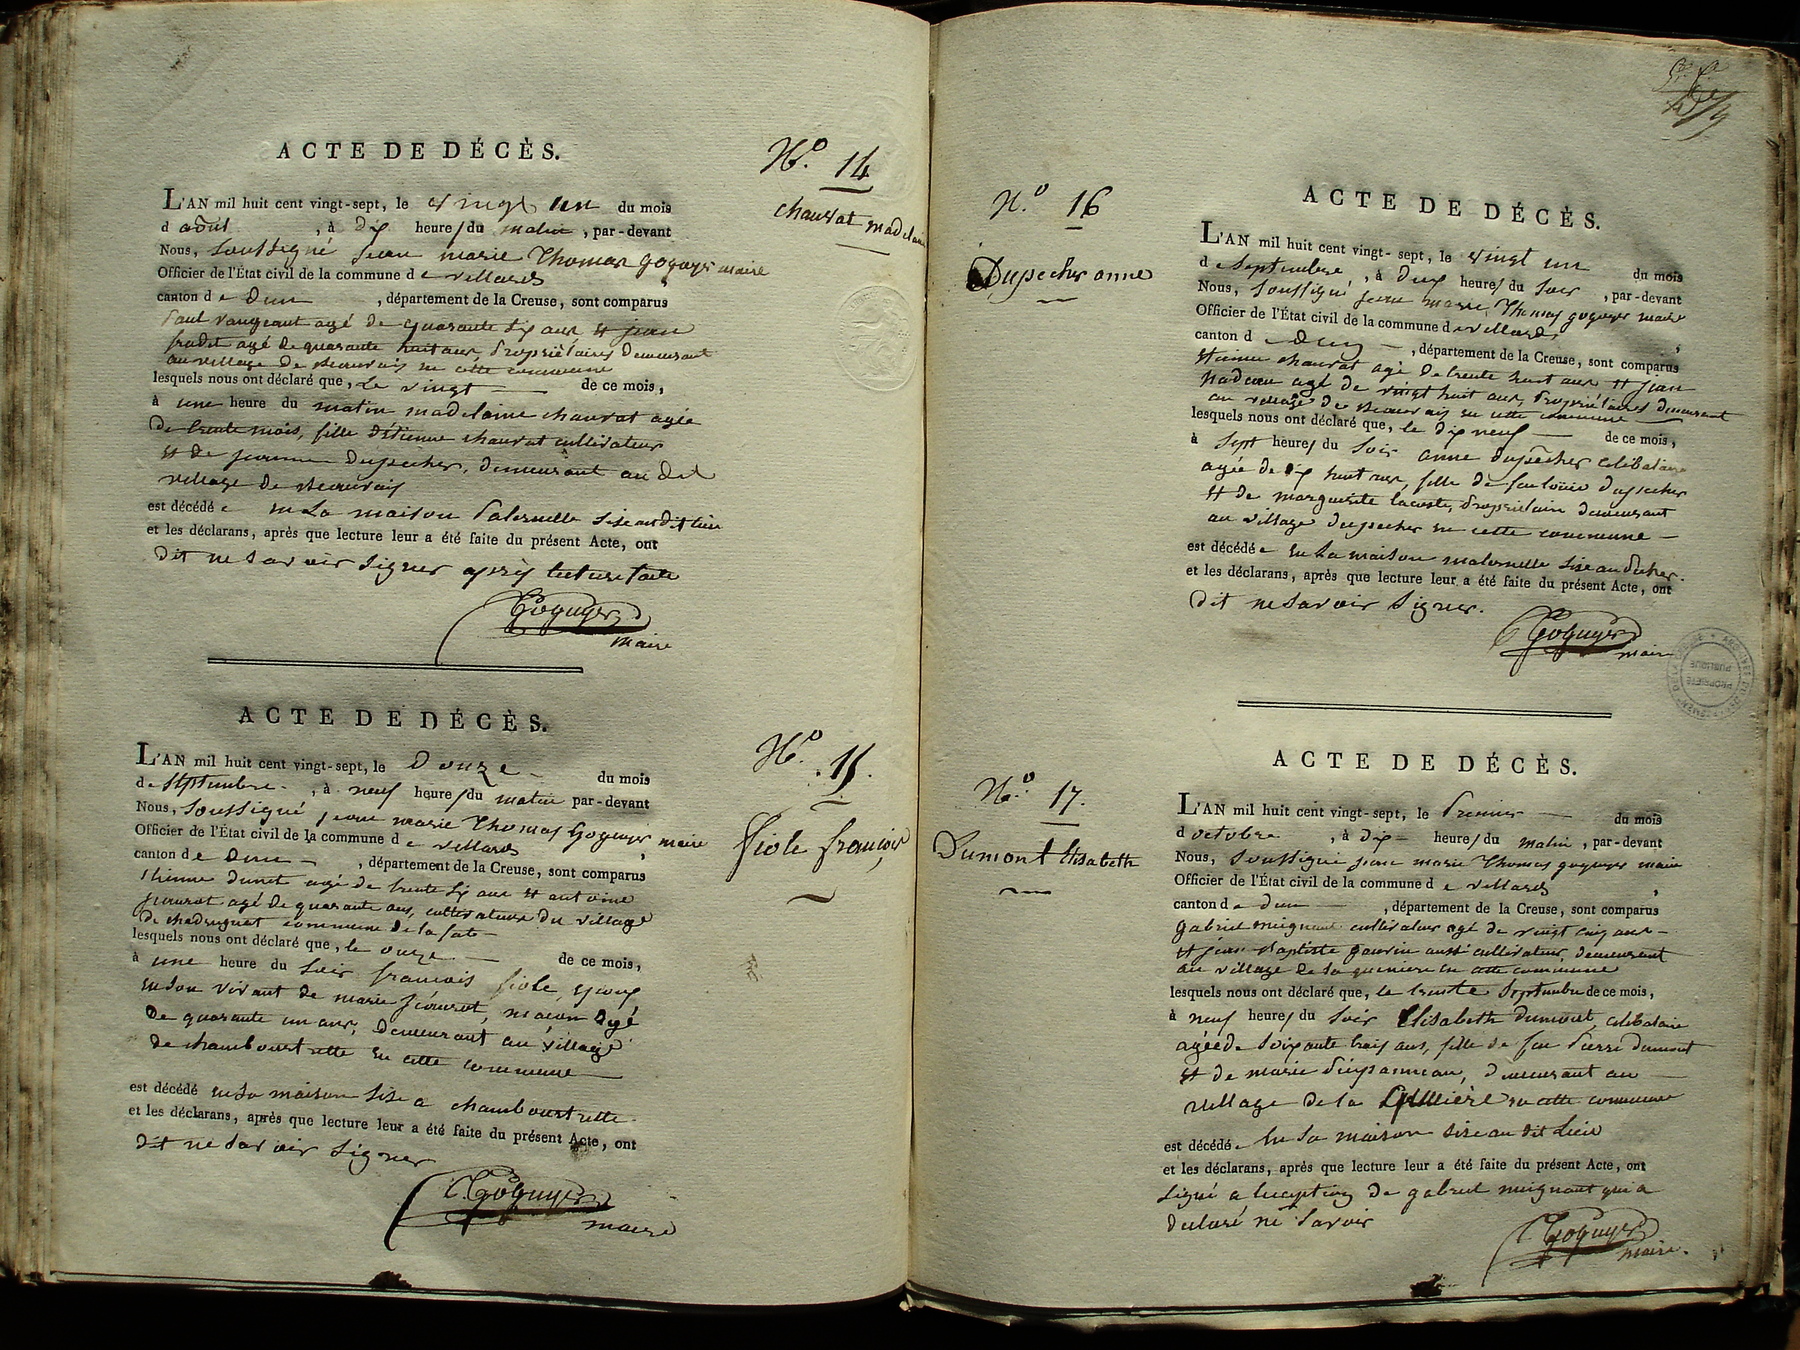 ACTE DE DÉCÈS.
N.o 14
chauvat madelaine
L'AN mil huit cent vingt-sept, le vingt un du mois
d août, à dix heures du matin, par-devant
Nous, soussigné jean marie Thomas goguyer maire
Officier de l'État civil de la commune de villards
canton de dun, département de la Creuse, sont comparus
Paul agé de quarante six ans et jean
agé de quarante huit ans, propriétaires demeurant
au village de Beauvais en cette commune
lesquels nous ont déclaré que, le vingt de ce mois,
à une heure du matin madelaine chauvat agée
de trente mois, fille d'étienne chauvat cultivateur
et de jeanne Dupecher, demeurant au dit
village de Beauvais
est décédée en la maison Paternelle sise au dit lieu
et les déclarans, après que lecture leur a été faite du présent Acte, ont
dit ne savoir signer après lecture faite
Goguyer
maire
ACTE DE DÉCÈS.
N.o 15.
fiole françois
L'AN mil huit cent vingt-sept, le Douze du mois
de septembre, à neuf heures du matin par-devant
Nous, soussigné jean marie Thomas Goguyer maire
Officier de l'État civil de la commune de villards
canton de Dun, département de la Creuse, sont comparus
étienne dunet agé de trente six ans et antoine
agé de quarante ans, cultivateurs du village
de commune de la
lesquels nous ont déclaré que, le onze de ce mois,
à une heure du soir françois fiole, époux
en son vivant de marie, macon agé
de quarante un ans, demeurant au village
de chambourtrette en cette commune
est décédé en sa maison sise a chambourtrette
et les déclarans, après que lecture leur a été faite du présent Acte, ont
dit ne savoir signer
Goguyer
maire
N.o 16
Dupecher anne
ACTE DE DÉCÈS.
L'AN mil huit cent vingt-sept, le vingt un du mois
de septembre, à deux heures du soir, par-devant
Nous, soussigné jean marie Thomas goguyer maire
Officier de l'État civil de la commune de villards,
canton de Dun, département de la Creuse, sont comparus
étienne chauvat agé de trente huit ans et jean
nadeau agé de vingt huit ans, propriétaires demeurant
au village de Beauvais en cette commune
lesquels nous ont déclaré que, le dix neuf de ce mois,
à sept heures du soir anne dupecher célibataire
agée de dix huit ans, fille de feu louis dupecher
et de marguerite lacoste, propriétaire demeurant
au village dupecher en cette commune
est décédée en la maison maternelle sise au Pecher.
et les déclarans, après que lecture leur a été faite du présent Acte, ont
dit ne savoir signer.
Goguyer
maire
ARCHIVES DU DÉPARTEMENT DE LA CREUSE
PROPRIÉTÉ PUBLIQUE
N.o 17.
Dumont Elisabeth
ACTE DE DÉCÈS.
L'AN mil huit cent vingt-sept, le Premier du mois
d octobre, à dix heures du matin, par-devant
Nous, soussigné jean marie Thomas goguyer maire
Officier de l'État civil de la commune de villards,
canton de dun, département de la Creuse, sont comparus
gabriel meignant cultivateur agé de vingt cinq ans
et jean Baptiste gauvin aussi cultivateur, demeurant
au village de la en cette commune
lesquels nous ont déclaré que, le trente septembre de ce mois,
à neuf heures du soir Elisabeth Dumont, célibataire
agée de soixante trois ans, fille de feu Pierre Dumont
et de marie, demeurant au
village de la en cette commune
est décédée en sa maison sise au dit lieu
et les déclarans, après que lecture leur a été faite du présent Acte, ont
signé a l'exception de gabriel meignant qui a
declaré ne savoir
Goguyer
maire.